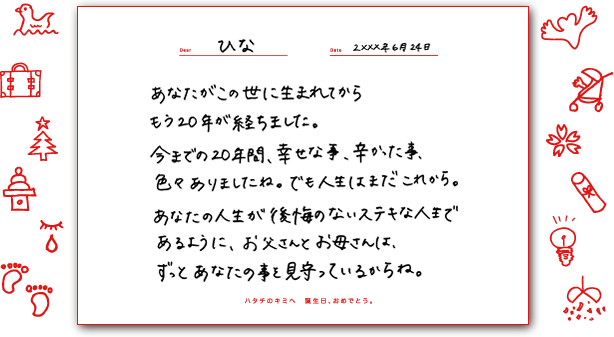 Dear ひな
Date 2XXX年6月24日
あなたがこの世に生まれてから
もう20年が経ちました。
今までの20年間、幸せな事、辛かった事、
色々ありましたね。でも人生はまだこれから。
あなたの人生が後悔のないステキな人生で
あるように、お父さんとお母さんは、
ずっとあなたの事を見守っているからね。
ハタチのキミへ 誕生日、おめでとう。